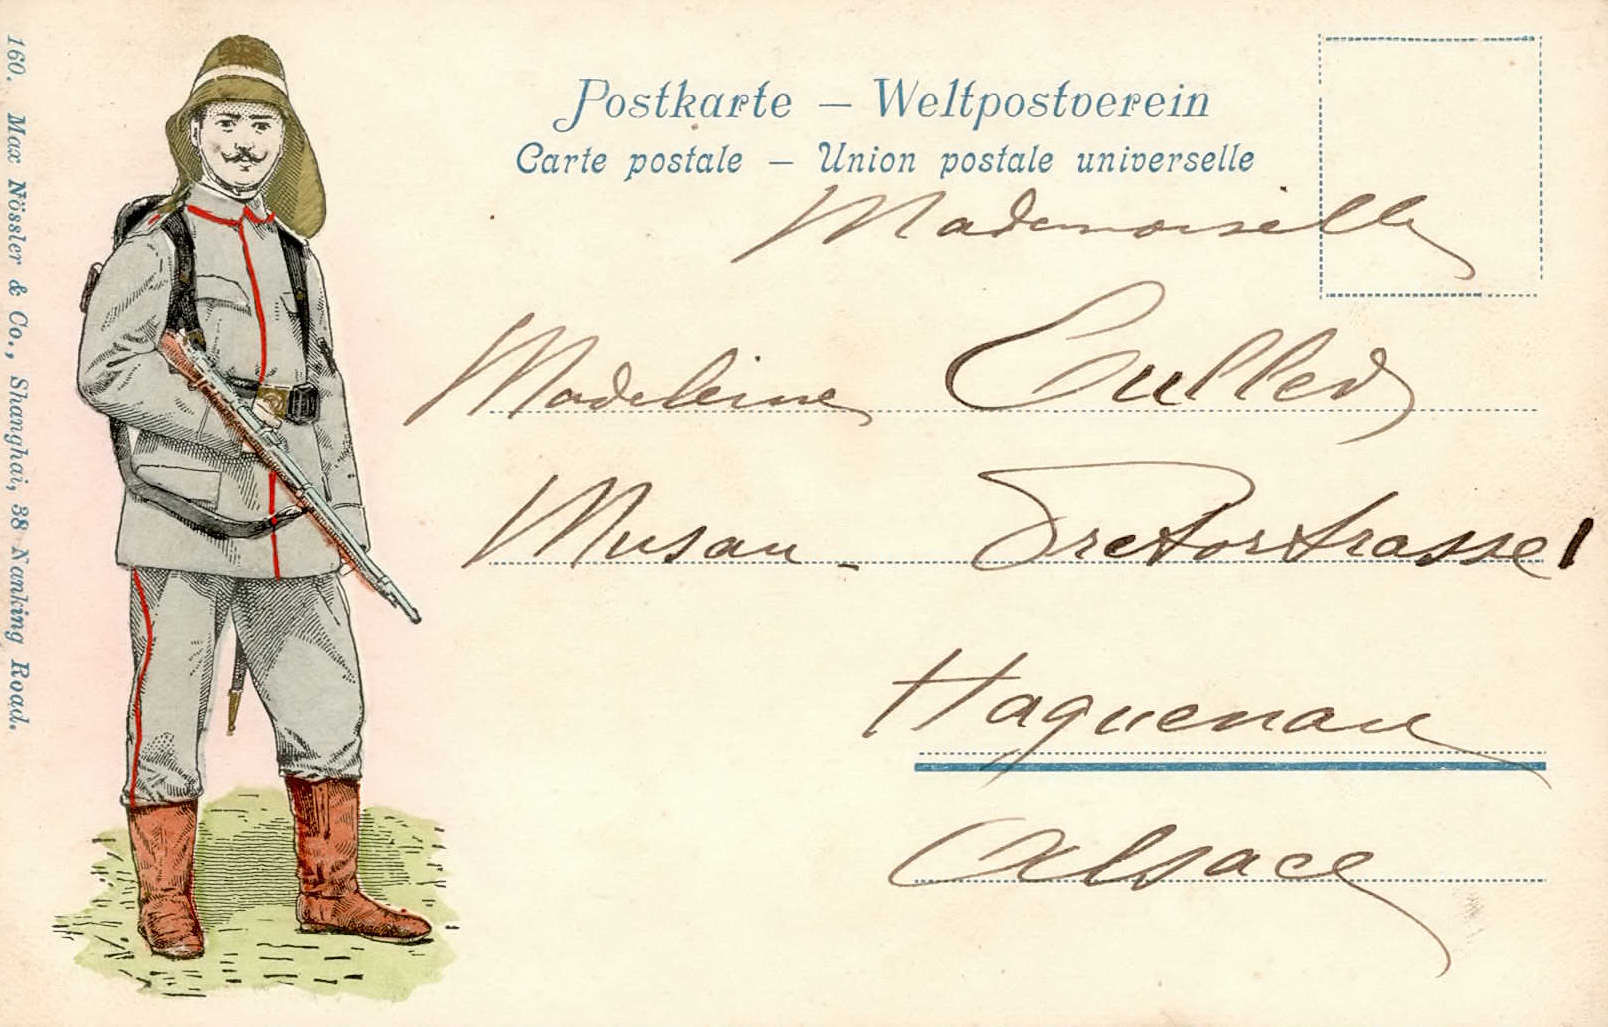 160. Max Nössler & Co., Shanghai, 38 Nanking Road.
Postkarte — Weltpostverein
Carte postale — Union postale universelle
Mademoiselle
Madeleine
Musau - 
Haguenau
Alsace